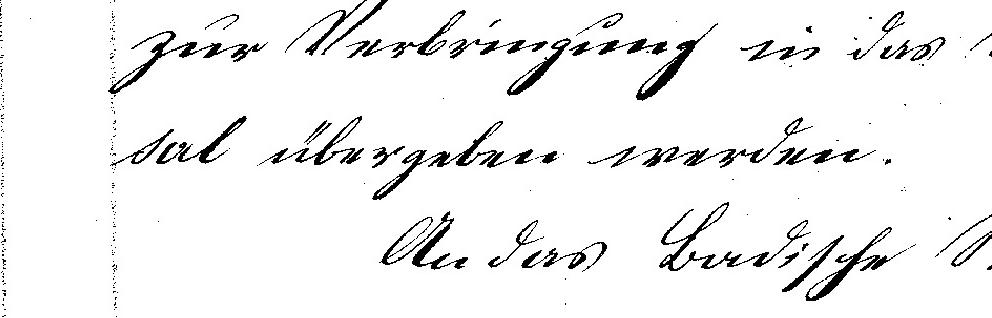 zur Verbringung in das
sal übergeben werden.
An das Badische